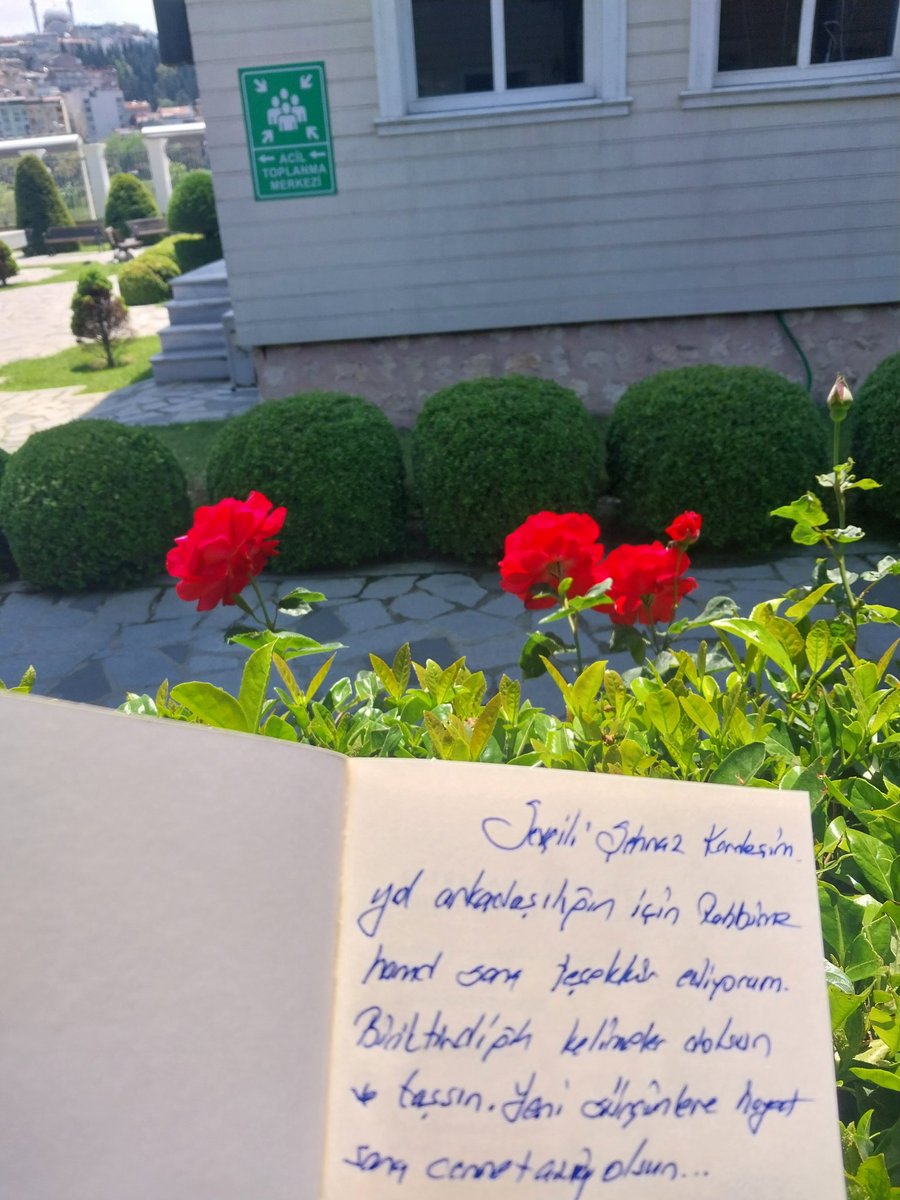 ← ACİL ←
TOPLANMA
MERKEZİ
Sevgili Şehnaz Kardeşim.
yol arkadaşılığın için Rabbime
hamd sana teşekkür ediyorum.
Biriktirdiğin kelimeler dolsun
ve taşsın. Yeni sürgünlere hayat
sana cennet azığı olsun...